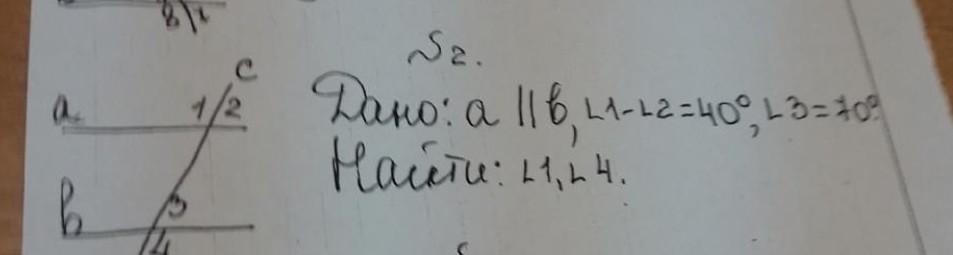 8 1
√2.
c
a 1 2
Дано: a || b, ∠1-∠2=40°, ∠3=70°.
Найти: ∠1, ∠4.
b 3
4